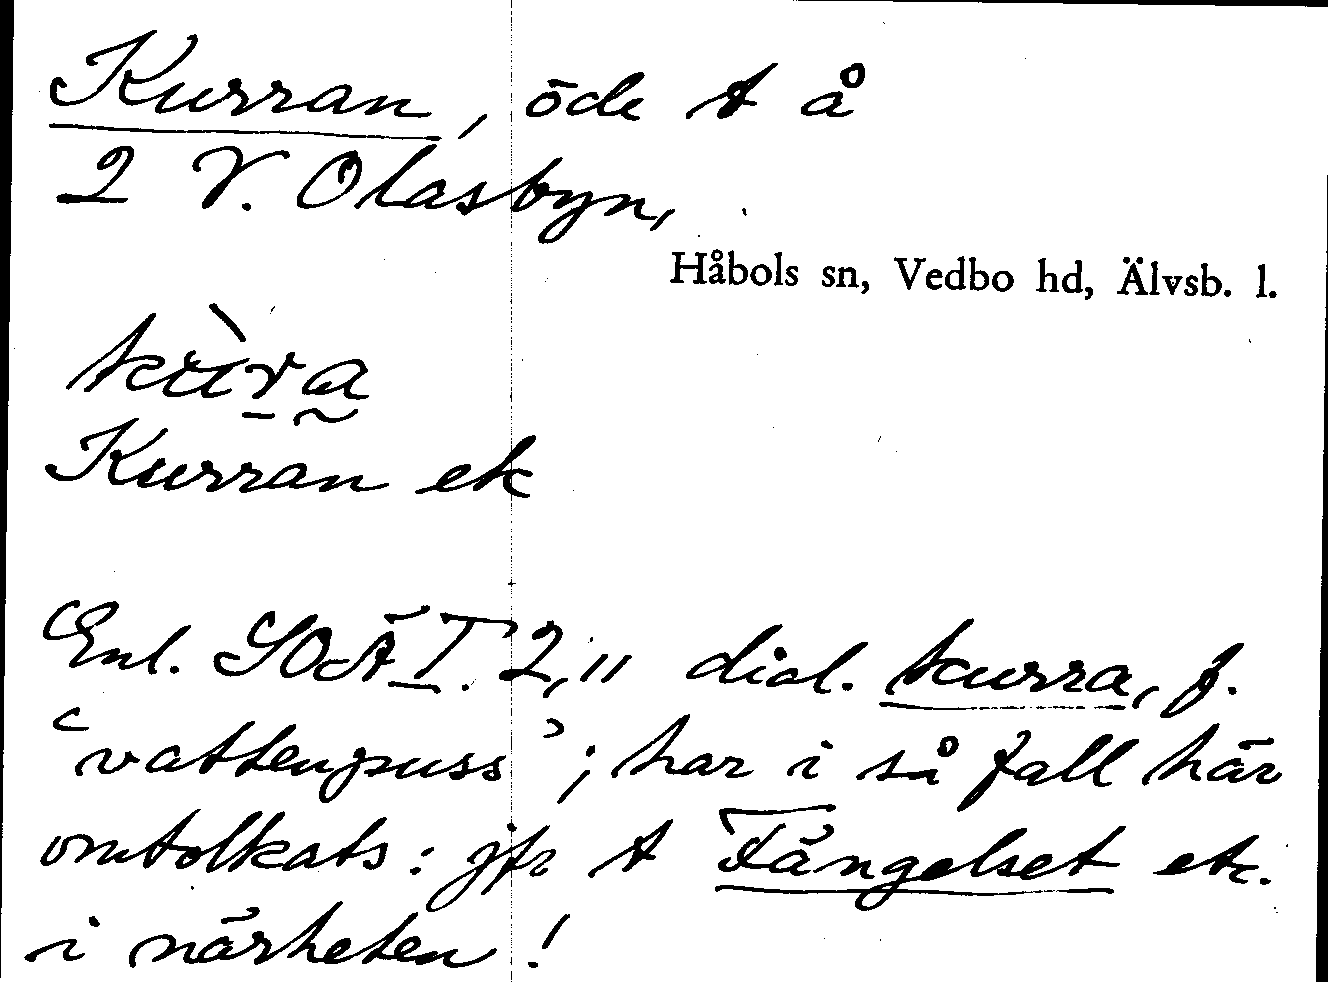 Kurran, öde t å
2 V. Olasbyn,
Håbols sn, Vedbo hd, Älvsb. l.
kùra
Kurran ek
Enl. SOÄ I. 2,11 dial. kurra, f.
‘vattenpuss’; har i så fall här
omtolkats: jfr t Fängelset etc.
i närheten!